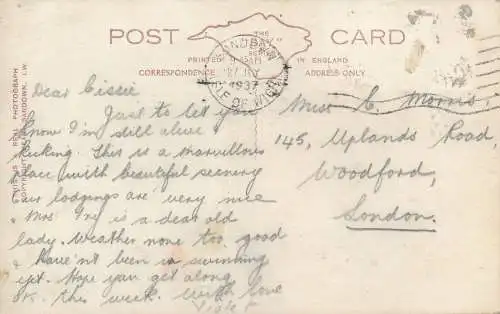 POST CARD
THE
PRINTED IN ENGLAND
CORRESPONDENCE ADDRESS ONLY
SANDOWN
1937
ISLE OF WIGHT
REAL PHOTOGRAPH
COPYRIGHT SANDOWN, I.W.
Dear Cissie
Just to let you
know I'm still alive
& kicking. This is a marvellous
place with beautiful scenery
our lodgings are very nice
& Mrs Ivy is a dear old
lady. Weather none too good
& haven't been in swimming
yet. Hope you get along
O.K. this week. With love
Violet
Miss C. Morris,
145, Uplands Road,
Woodford,
London.